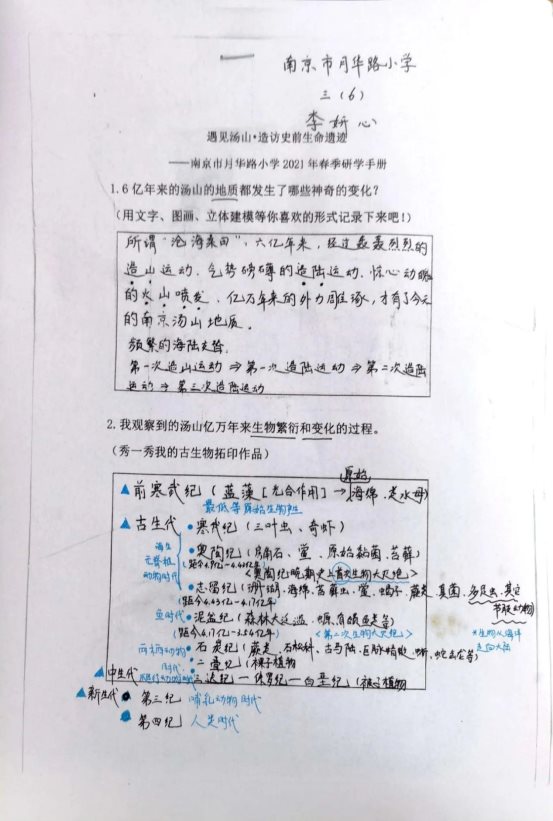 南京市月华路小学
三（6）
李妍心
遇见汤山·造访史前生命遗迹
——南京市月华路小学2021年春季研学手册
1.6亿年来的汤山的地质都发生了哪些神奇的变化？
（用文字、图画、立体建模等你喜欢的形式记录下来吧！）
所谓“沧海桑田”，六亿年来，经过轰轰烈烈的
造山运动，气势磅礴的造陆运动，惊心动魄
的火山喷发，亿万年来的外力雕琢，才有了今天
的南京汤山地质。
频繁的海陆交替。
第一次造山运动⇒第一次造陆运动⇒第二次造陆
运动⇒第三次造陆运动
2.我观察到的汤山亿万年来生物繁衍和变化的过程。
（秀一秀我的古生物拓印作品）
原始
▲前寒武纪（蓝藻[光合作用]→海绵、老水母）
最低等原始生物产生
▲古生代·寒武纪（三叶虫、奇虾）
海生
无脊椎
动物时代
·奥陶纪（鹦鹉石、萤、原始黏菌、苔藓）
<奥陶纪晚期史上首次生物大灭绝>
·志留纪（珊瑚、海绵、苔藓虫、萤、蝎子、蕨类、真菌、多足虫、其它
节肢动物）
（距今4.43亿-4.17亿年
鱼时代·泥盆纪（森林大泛滥、
（距今4.17亿-3.54亿年）
<第二次生物大灭绝>
*生物从海洋
走向大陆
两栖动物
时代
·石炭纪（蕨类、石松科、古马陆、巨脉蜻蜓、蜥、蛇
·二叠纪（裸子植物
▲中生代 爬行动物时代·三迭纪—侏罗纪—白垩纪（被子植物
▲新生代·第三纪 哺乳动物时代
·第四纪 人类时代